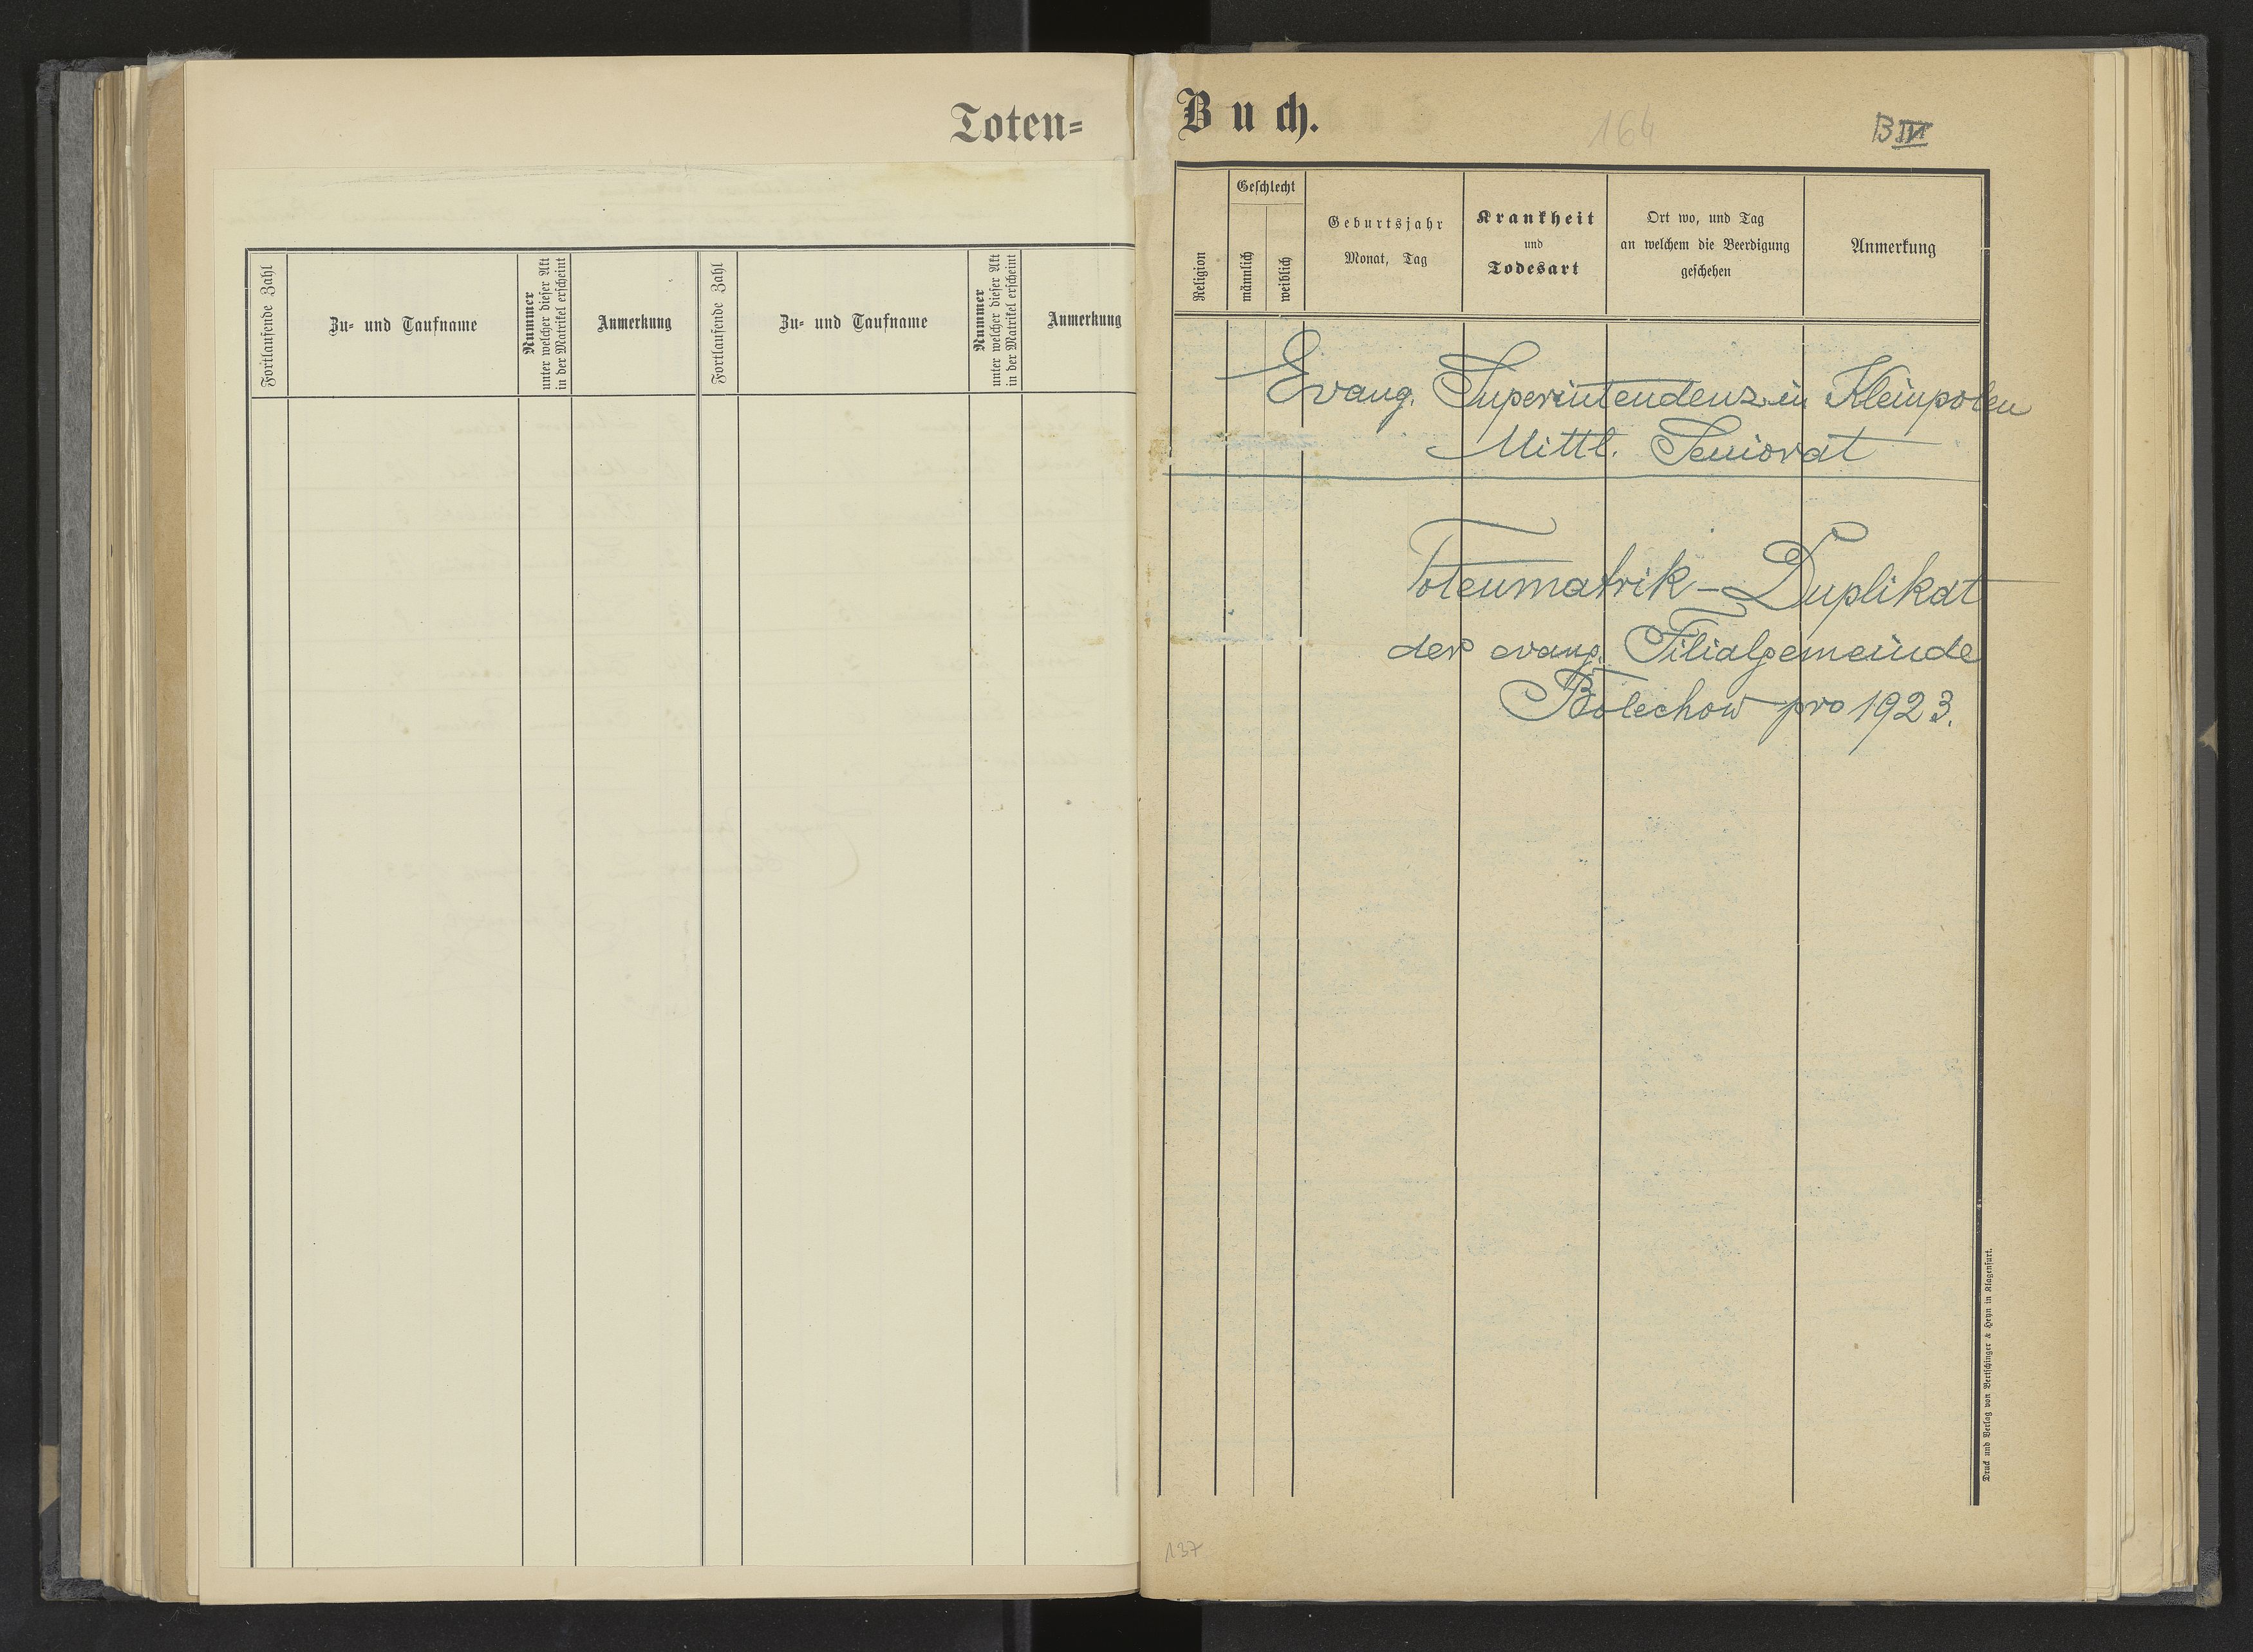 Toten=
Fortlaufende Zahl
Zu= und Taufname
Nummer
unter welcher dieser Akt
in der Matrikel erscheint
Anmerkung
Fortlaufende Zahl
Zu= und Taufname
Nummer
unter welcher dieser Akt
in der Matrikel erscheint
Anmerkung
Buch.
164
B IV
Religion
Geschlecht
männlich
weiblich
Geburtsjahr
Monat, Tag
Krankheit
und
Todesart
Ort wo, und Tag
an welchem die Beerdigung
geschehen
Anmerkung
Evang. Superintendenz in Kleinpolen
Mittl. Seniorat
Totenmatrik - Duplikat
der evang. Filialgemeinde
Bolechow pro 1923.
Druck und Verlag von Bertschinger & Heyn in Klagenfurt.
137